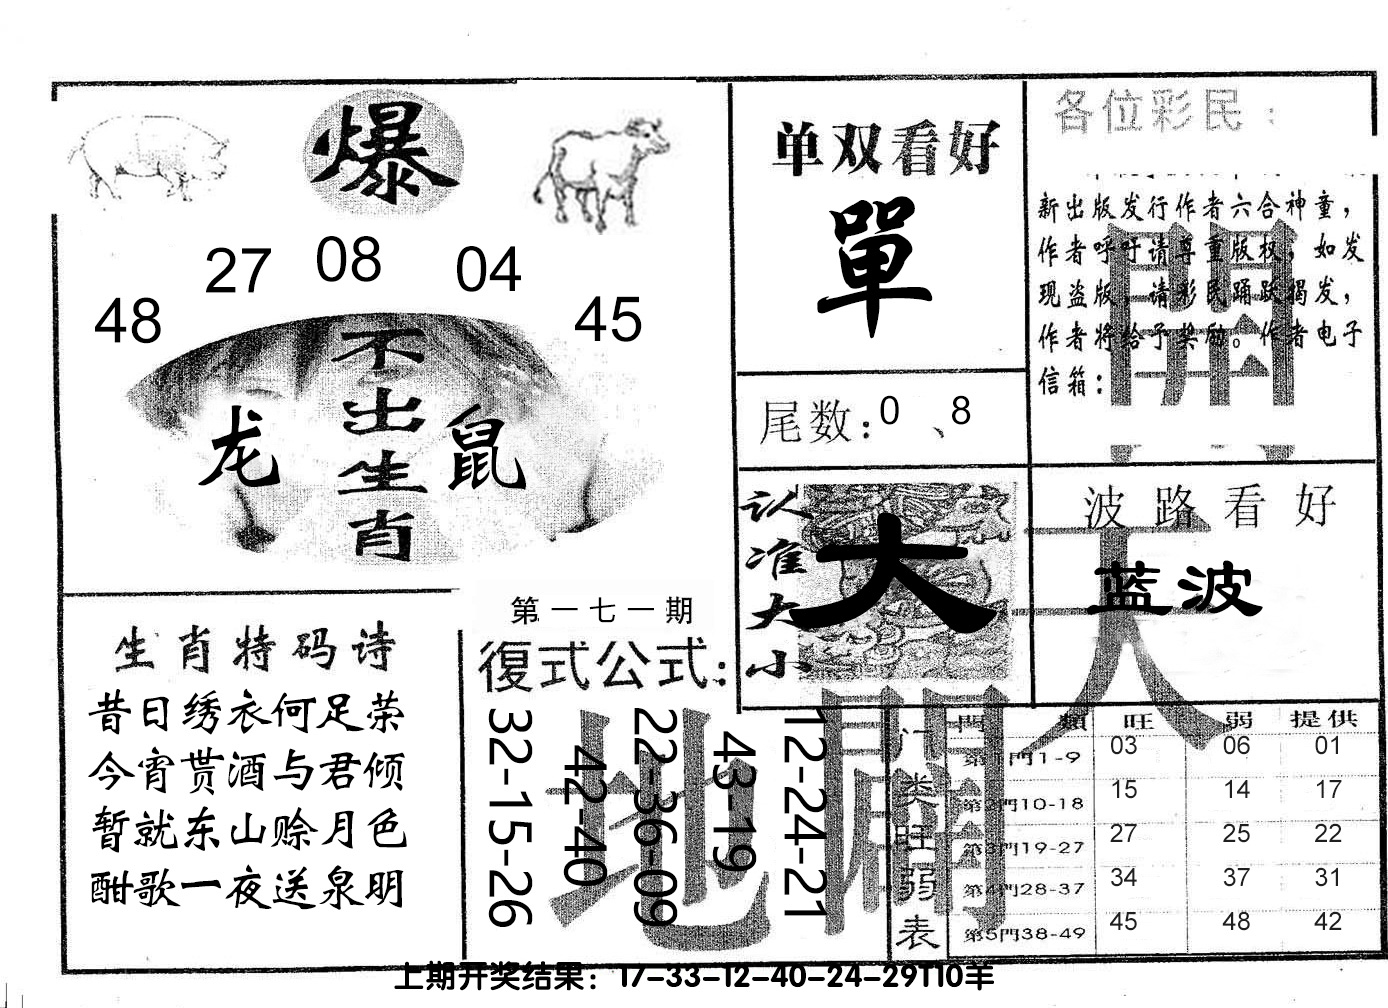 爆
48 27 08 04 45
不出生肖
龙 鼠
单双看好
單
尾数:0、8
各位彩民:
新出版发行作者六合神童,
作者呼吁请尊重版权,如发
现盗版,请彩民踊跃揭发,
作者将给予奖励。作者电子
信箱:
開
认准大小
大
波路看好
蓝波
天
生肖特码诗
昔日绣衣何足荣
今宵贳酒与君倾
暂就东山赊月色
酣歌一夜送泉明
第一七一期
復式公式:
32-15-26
42-40
22-36-09
43-19
12-24-21
地
門类旺弱表
門類 旺 弱 提供
第1門1-9 03 06 01
第2門10-18 15 14 17
第3門19-27 27 25 22
第4門28-37 34 37 31
第5門38-49 45 48 42
上期开奖结果:17-33-12-40-24-29T10羊